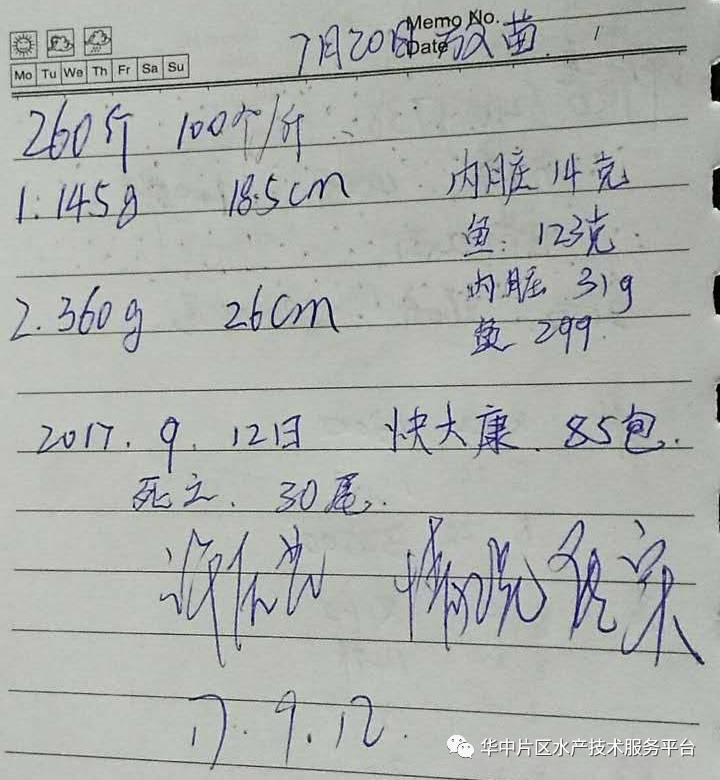 Memo No.
Mo Tu We Th Fr Sa Su
Date
7月20日 放苗.
260斤 100个/斤
1. 145g 18.5cm 内脏 14克
鱼: 123克.
2. 360g 26cm 内脏 31g
鱼 299.
2017. 9. 12日 快大康. 85包.
死亡. 30尾.
情况属实
17. 9. 12.
华中片区水产技术服务平台